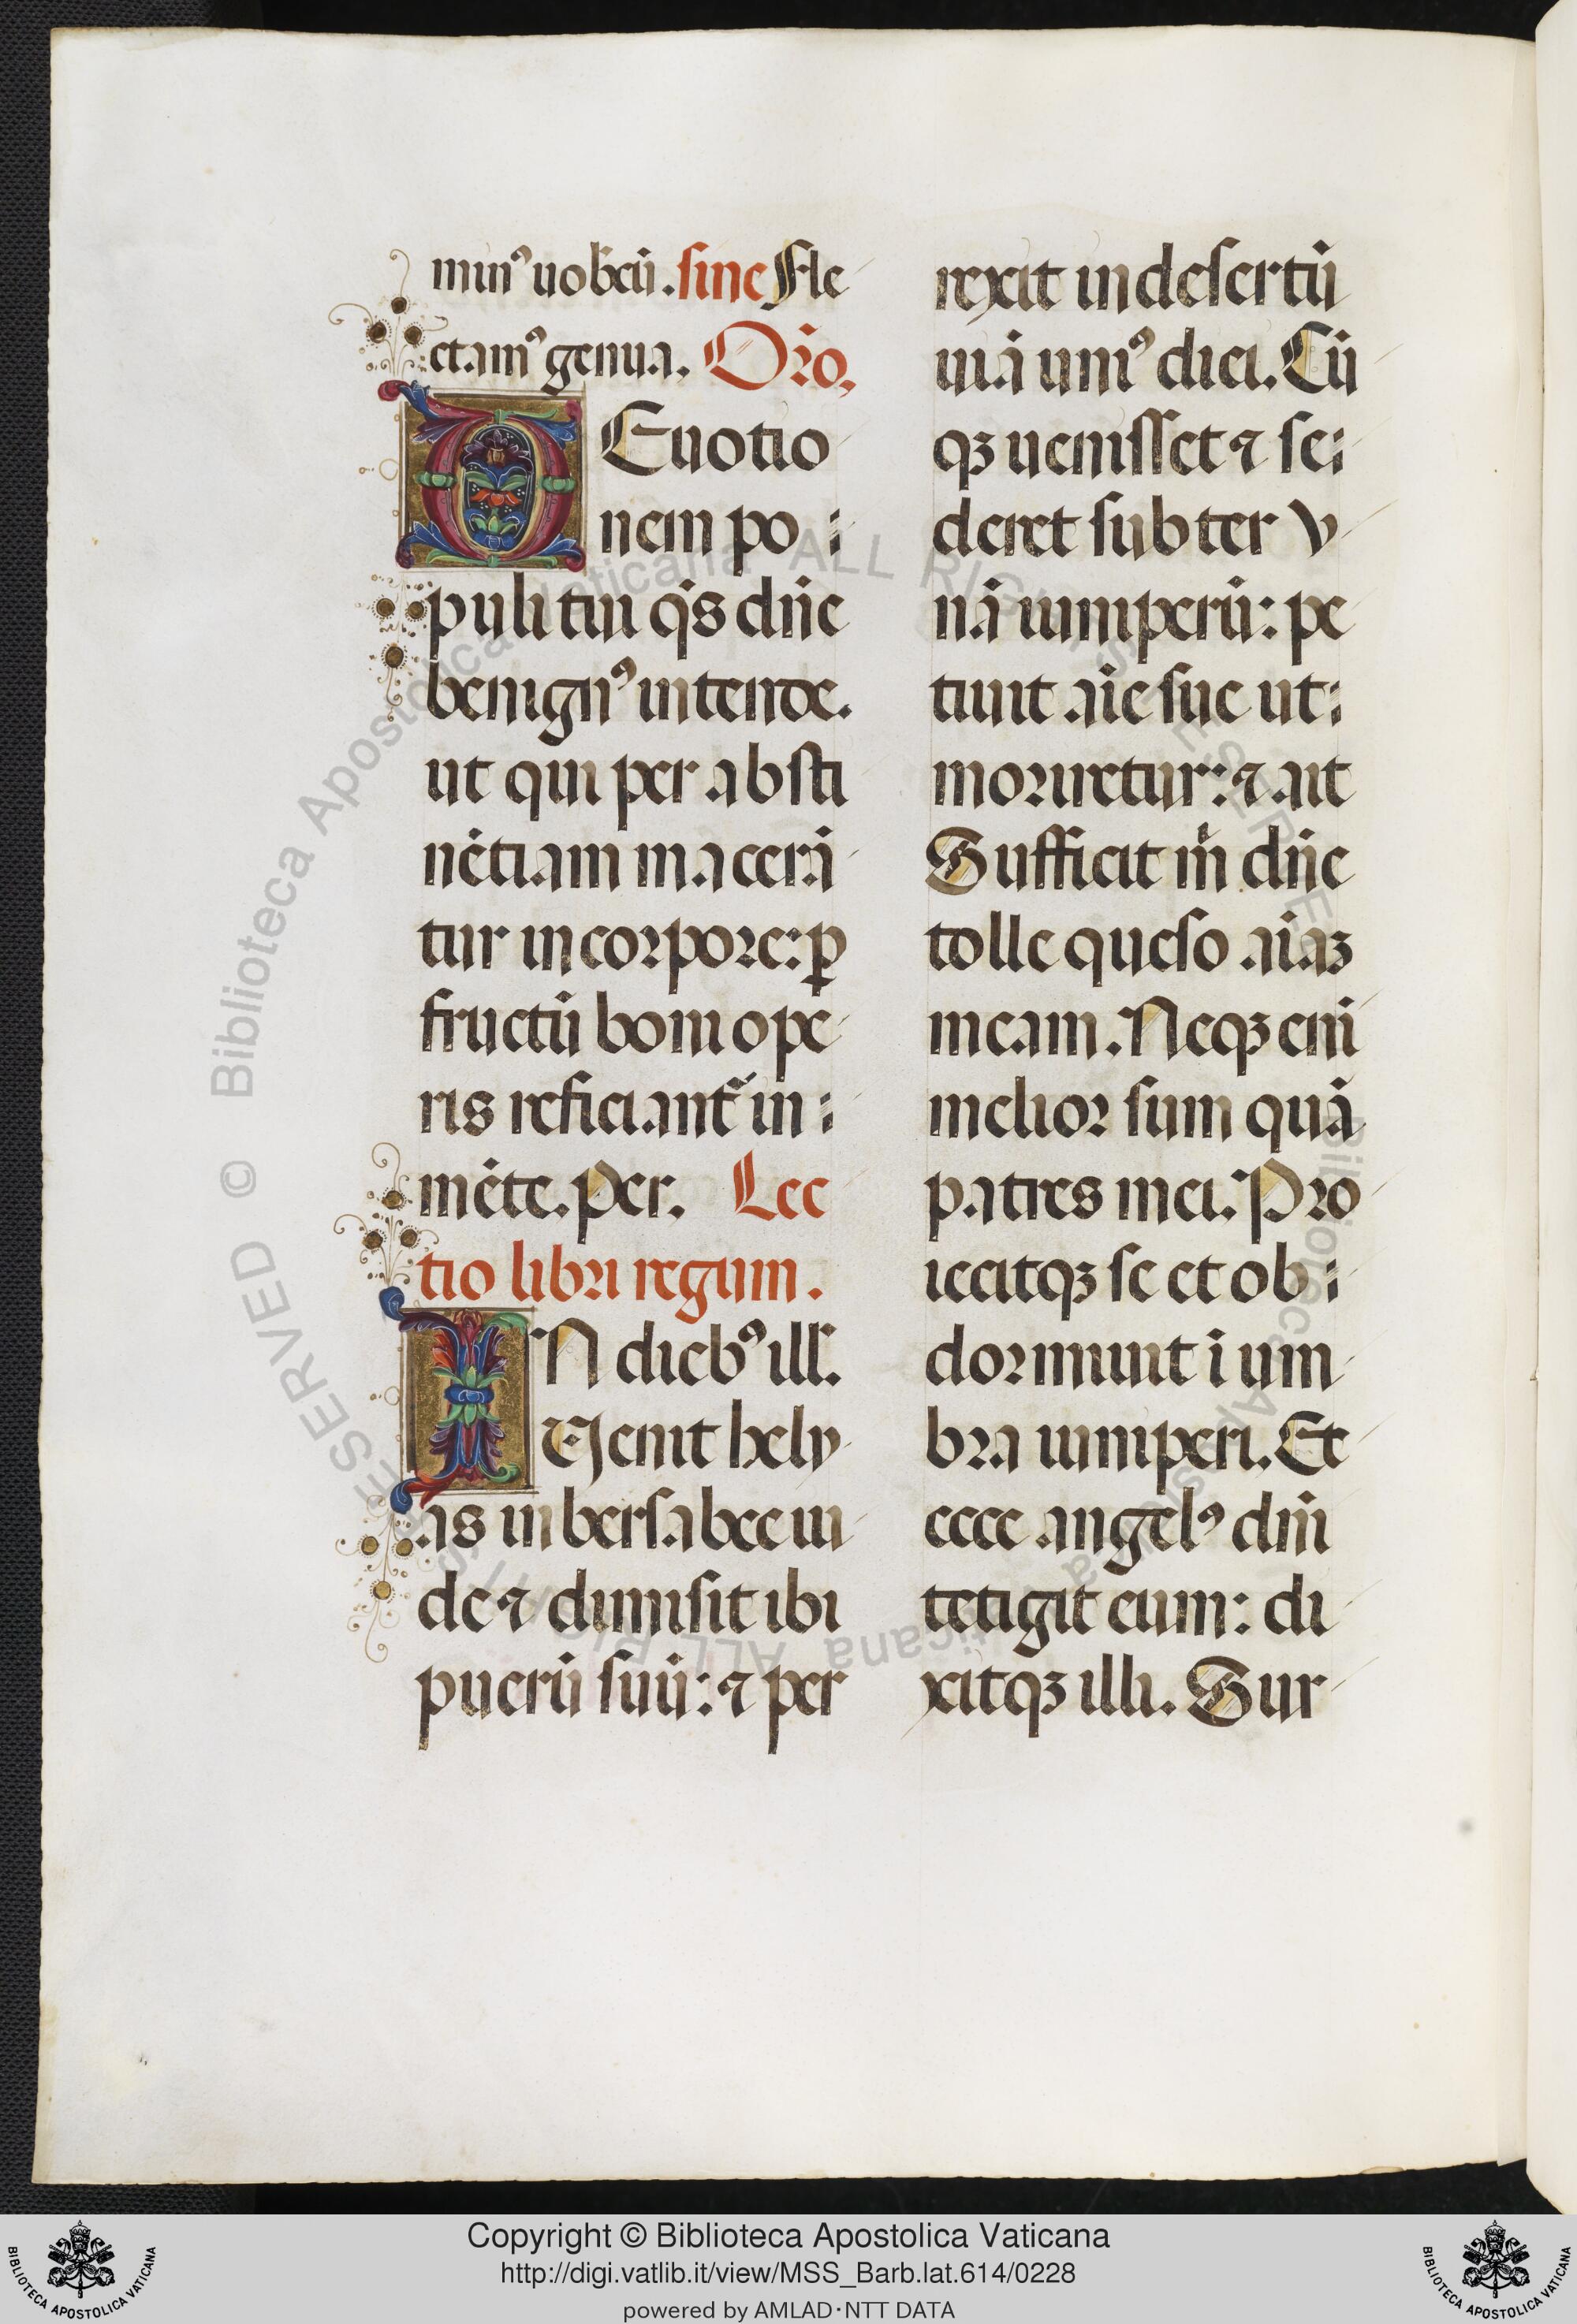 minꝰ uobcū. sine Fle
ctamꝰ genua. Oro̅.
DEuotio
nem po:
puli tui q̅s dn̅e
benignꝰ intende.
ut qui per absti
nētiam macerā
tur in corpore: ꝑ
fructū boni ope
ris reficiant᷑ in:
mēte. Per. Lec
tio libri regum.
IN diebꝰ ill̅.
Uenit hely
as in bersabee iu
de ⁊ dimisit ibi
puerū suū: ⁊ per
rexit in desertū
uiā uniꝰ diei. Cū
qꝫ uenisset ⁊ se:
deret subter v
nā iuniperū: pe
tiuit aīe sue ut:
moriretur: ⁊ ait
Sufficit m̅ dn̅e
tolle queso aīaꝫ
meam. Neqꝫ eni̅
melior sum quā
patres mei. Pro
iecitqꝫ se et ob:
dormiuit ī um
bra iuniperi. Et
ecce angelꝰ dn̅i
tetigit eum: di
xitqꝫ illi. Sur
© Biblioteca Apostolica Vaticana ALL RIGHTS RESERVED
Copyright © Biblioteca Apostolica Vaticana
http://digi.vatlib.it/view/MSS_Barb.lat.614/0228
powered by AMLAD·NTT DATA
BIBLIOTECA APOSTOLICA VATICANA
BIBLIOTECA APOSTOLICA VATICANA